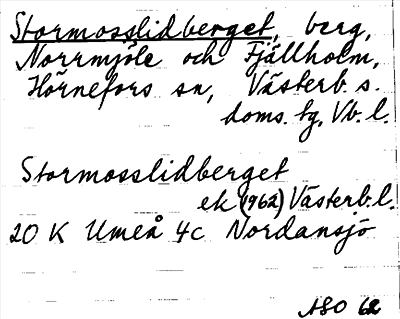 Stormosslidberget, berg,
Norrmjöle och Fjällholm,
Hörnefors sn, Västerb. s.
doms. tg, Vb. l.
Stormosslidberget
ek (1962) Västerb. l.
20 K Umeå 4c Nordansjö
ASO 62